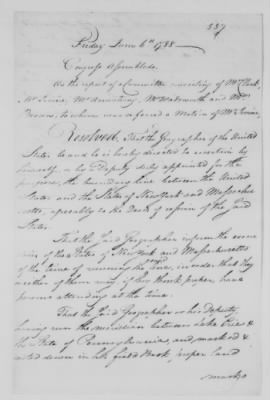 337
Friday June 6th 1788
Congress Assembled.
On the report of a Committee consisting of Mr Clark,
Mr Irvine, Mr Armstrong, Mr Wadsworth and Mr
Brown, to whom was referred a Motion of Mr Irvine,
Resolved, That the Geographer of the United
States be and he is hereby directed to ascertain by
himself or by a Deputy duly appointed for the
purpose, the boundary line between the United
States and the States of New York and Massachu
setts, agreeably to the Deeds of cession of the said
States.
That the said Geographer inform the execu
tives of the States of New York and Massachusetts
of the time of running the line, in order that they
or either of them may if they think proper, have
persons attending at the time.
That the said Geographer or his Deputy
having run the meridian between Lake Erie &
the State of Pennsylvania and marked &
noted down in his field Book, proper Land
marks